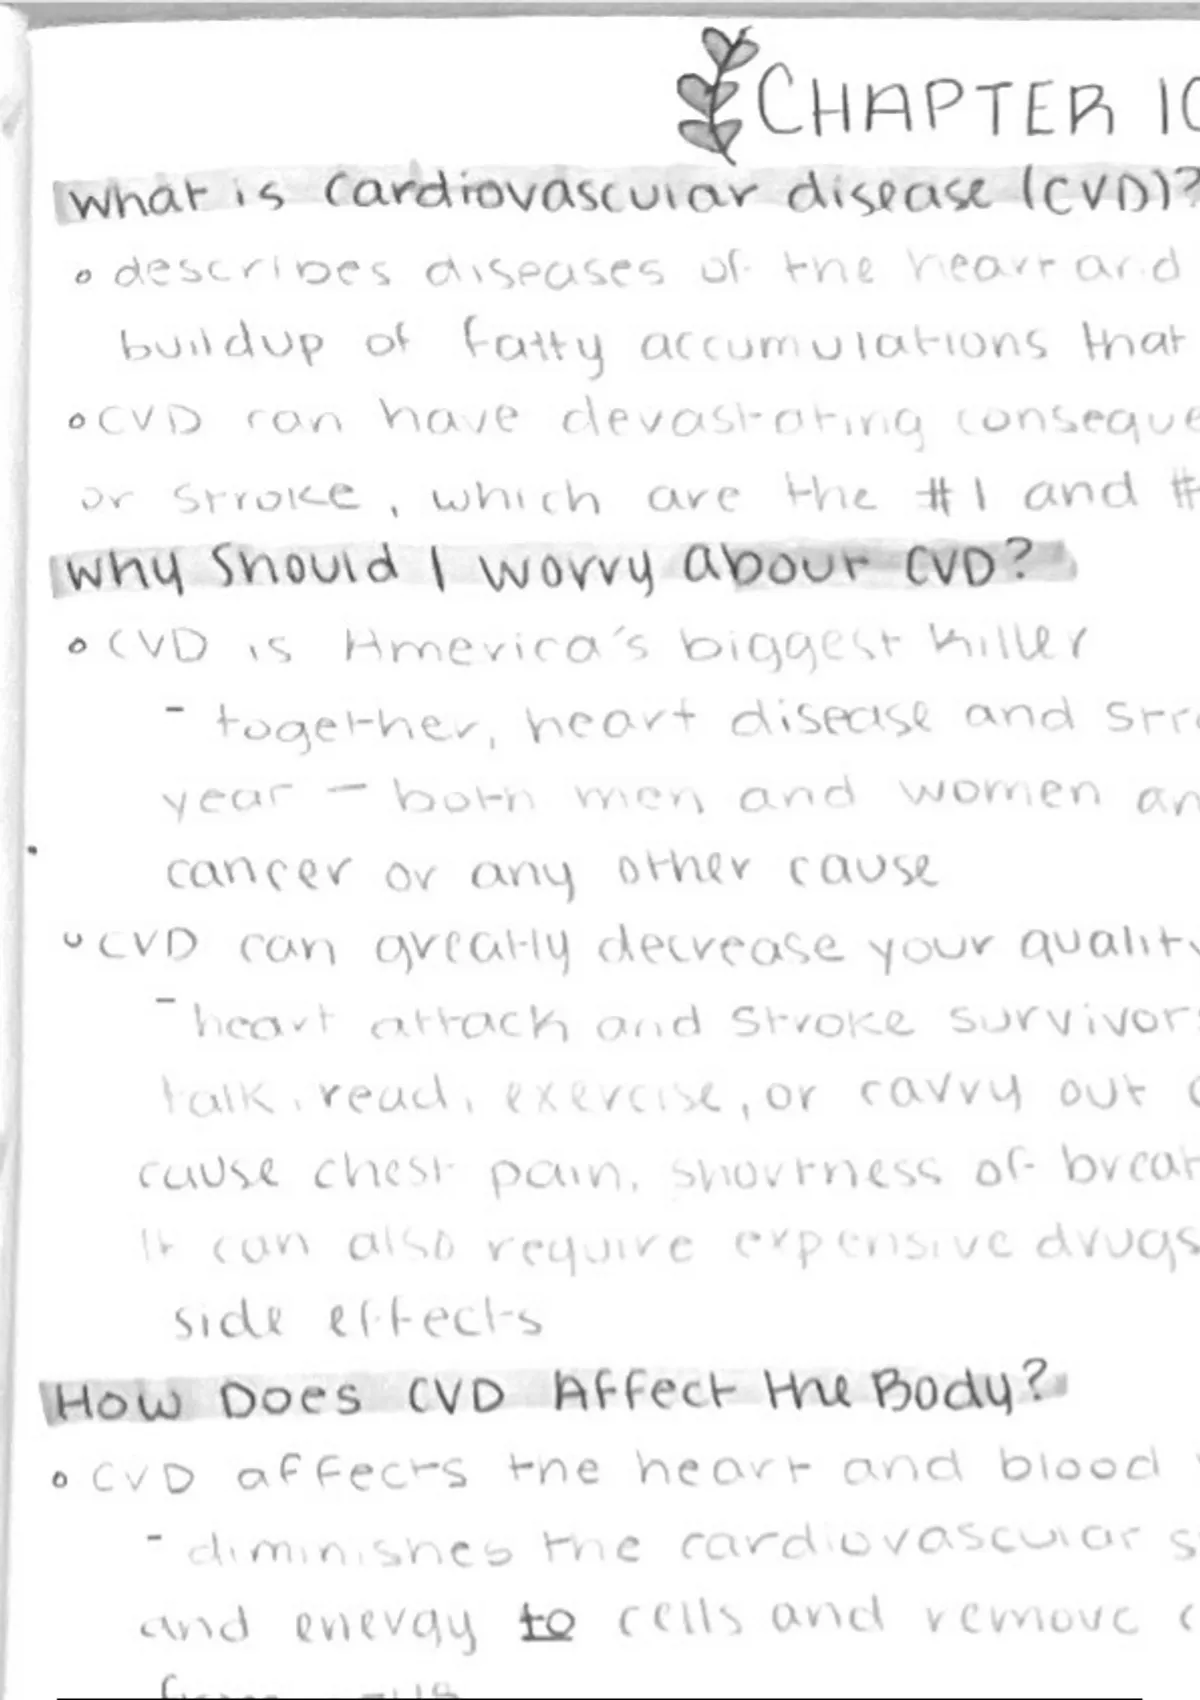 CHAPTER 10
What is Cardiovascular disease (CVD)?
◦ describes diseases of the heart and
buildup of fatty accumulations that
◦ CVD can have devastating conseque
or stroke, which are the #1 and #
Why Should I worry about CVD?
◦ CVD is America's biggest killer
- together, heart disease and stro
year – both men and women an
cancer or any other cause
◦ CVD can greatly decrease your quality
- heart attack and stroke survivors
talk, read, exercise, or carry out
cause chest pain, shortness of breat
It can also require expensive drugs
side effects
How Does CVD Affect the Body?
◦ CVD affects the heart and blood
- diminishes the cardiovascular s
and energy to cells and remove c